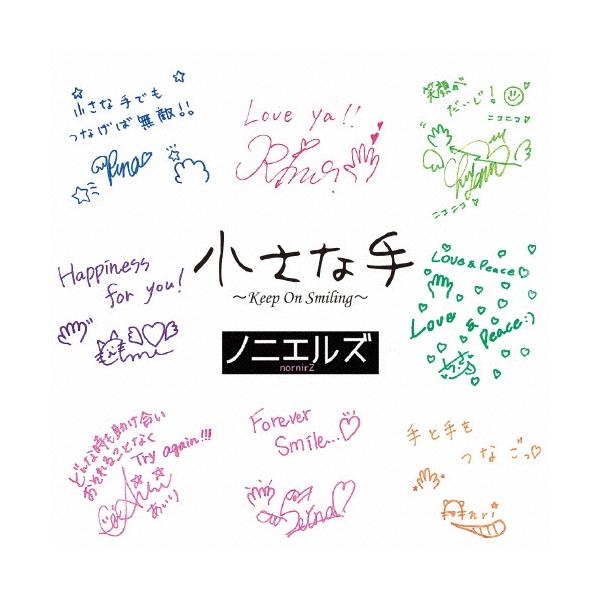 小さな手でも
つなげば無敵!!
Love ya!!
笑顔が
だいじ!
ニコニコ
ニコニコ
Happiness
for you!
小さな手
〜Keep On Smiling〜
ノニエルズ
nornirZ
Love & Peace
Love &
Peace:)
どんな時も助け合い
おそれることなく
Try again!!!
あいり
Forever
Smile...
手と手を
つなごっ